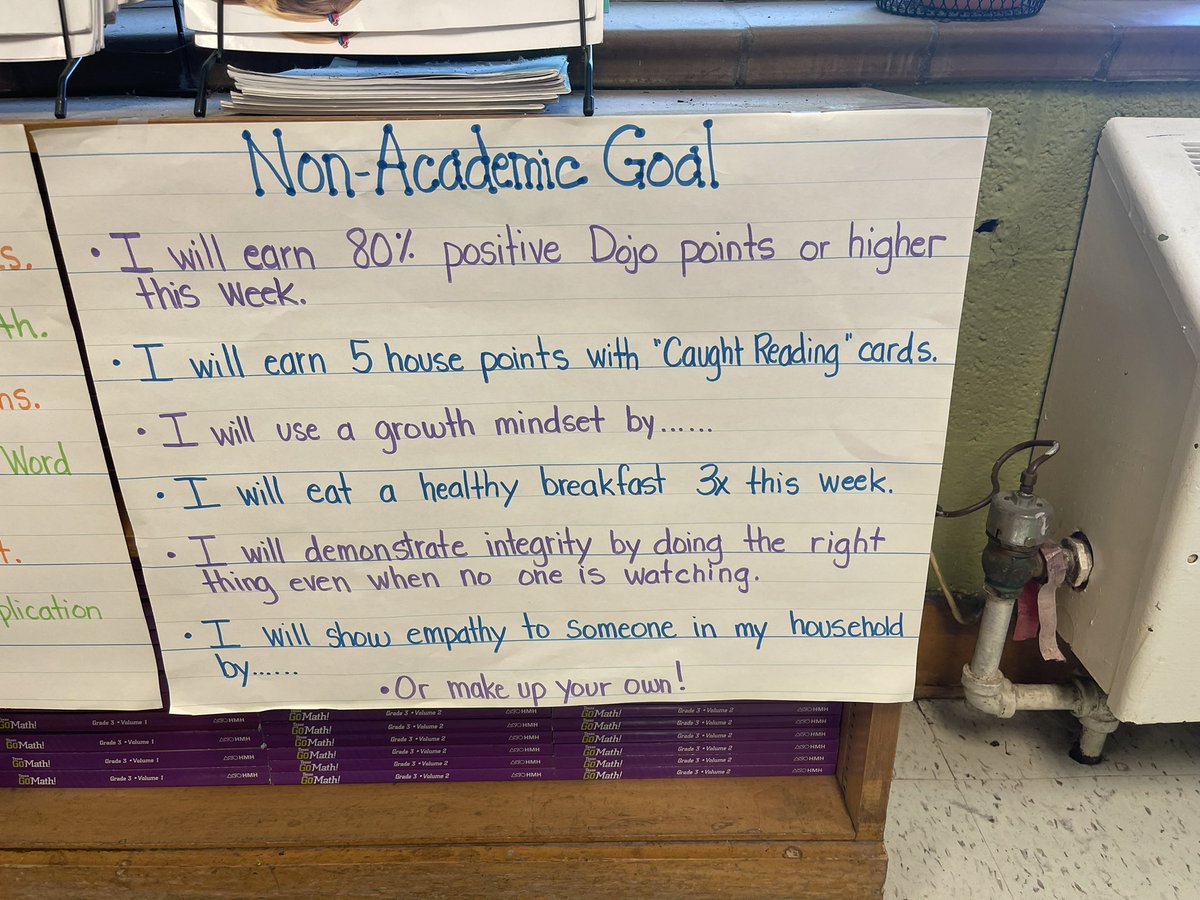 Non-Academic Goal
• I will earn 80% positive Dojo points or higher
this week.
• I will earn 5 house points with "Caught Reading" cards.
• I will use a growth mindset by......
• I will eat a healthy breakfast 3x this week.
• I will demonstrate integrity by doing the right
thing even when no one is watching.
• I will show empathy to someone in my household
by......
• Or make up your own!
s.
th.
ns.
Word
t.
plication
GoMath! Grade 3 • Volume 1 HMH
GoMath! Grade 3 • Volume 1 HMH
GoMath! Grade 3 • Volume 1 HMH
GoMath! Grade 3 • Volume 1 HMH
GoMath! Grade 3 • Volume 2 HMH
GoMath! Grade 3 • Volume 2 HMH
GoMath! Grade 3 • Volume 2 HMH
GoMath! Grade 3 • Volume 2 HMH
GoMath! Grade 3 • Volume 2 HMH
GoMath! Grade 3 • Volume 2 HMH
GoMath! Grade 3 • Volume 2 HMH
GoMath! Grade 3 • Volume 2 HMH
GoMath! Grade 3 • Volume 2 HMH
GoMath! Grade 3 • Volume 2 HMH